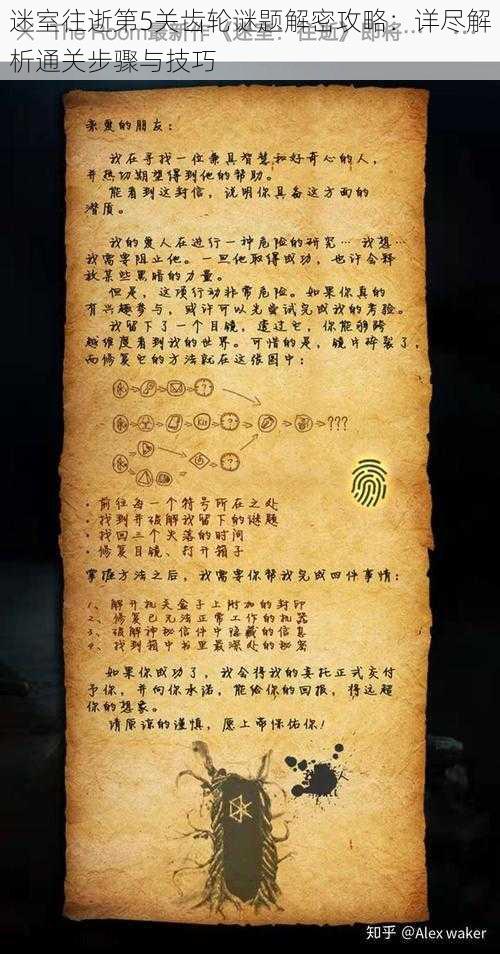 迷室往逝第5关齿轮谜题解密攻略：详尽解
析通关步骤与技巧
The Room最新作《迷室：往逝》即将…
亲爱的朋友：
我在寻找一位兼具智慧和好奇心的人，
并热切期望得到他的帮助。
能看到这封信，说明你具备这方面的
潜质。
我的爱人在进行一种危险的研究…我想…
我需要阻止他。一旦他取得成功，也许会释
放某些黑暗的力量。
但是，这项行动非常危险。如果你真的
有兴趣参与，或许可以先尝试完成我的考验。
我留下了一个目镜，透过它，你能够跨
越维度看到我的世界。可惜的是，镜片碎裂了，
而修复它的方法就在这张图中：
?
???
?
· 前往每一个符号所在之处
· 找到并破解我留下的谜题
· 找回三个失落的时间
· 修复目镜、打开箱子
掌握方法之后，我需要你帮我完成四件事情：
1、解开机关盒子上附加的封印
2、修复已无法正常工作的机器
3、破解神秘信件中隐藏的信息
4、找到箱中书里最深处的秘密
如果你成功了，我会将我的委托正式交付
予你，并向你承诺，能给你的回报，将远超
你的想象。
请原谅我的谨慎，愿上帝保佑你！
知乎 @Alex waker